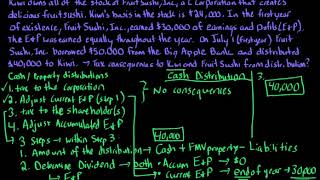 Kiwi owns all of the stock of Fruit Sushi, Inc., a C corporation that creates
delicious fruit sushi. Kiwi's basis in the stock is $24,000. In the first year
of existence, Fruit Sushi, Inc. earned $30,000 of Earnings and Profits (E+P).
The E+P was earned equally throughout the year. On July 1 (first year) Fruit
Sushi, Inc. borrowed $50,000 from the Big Apple Bank, and distributed
$40,000 to Kiwi. → Tax consequences to Kiwi and Fruit Sushi from distribution?
Cash / Property distributions
1. Tax to the corporation
2. Adjust Current E+P (step 1)
3. Tax to the shareholder(s)
4. Adjust Accumulated E+P
3 Steps → within Step 3
1. Amount of the distribution → Cash + FMV property - Liabilities
2. Determine Dividend → both • Accum E+P → $0
→ E+P • Current E+P → end of year → 30,000
Cash Distribution
No consequences
2.
40,000
3.
40,000